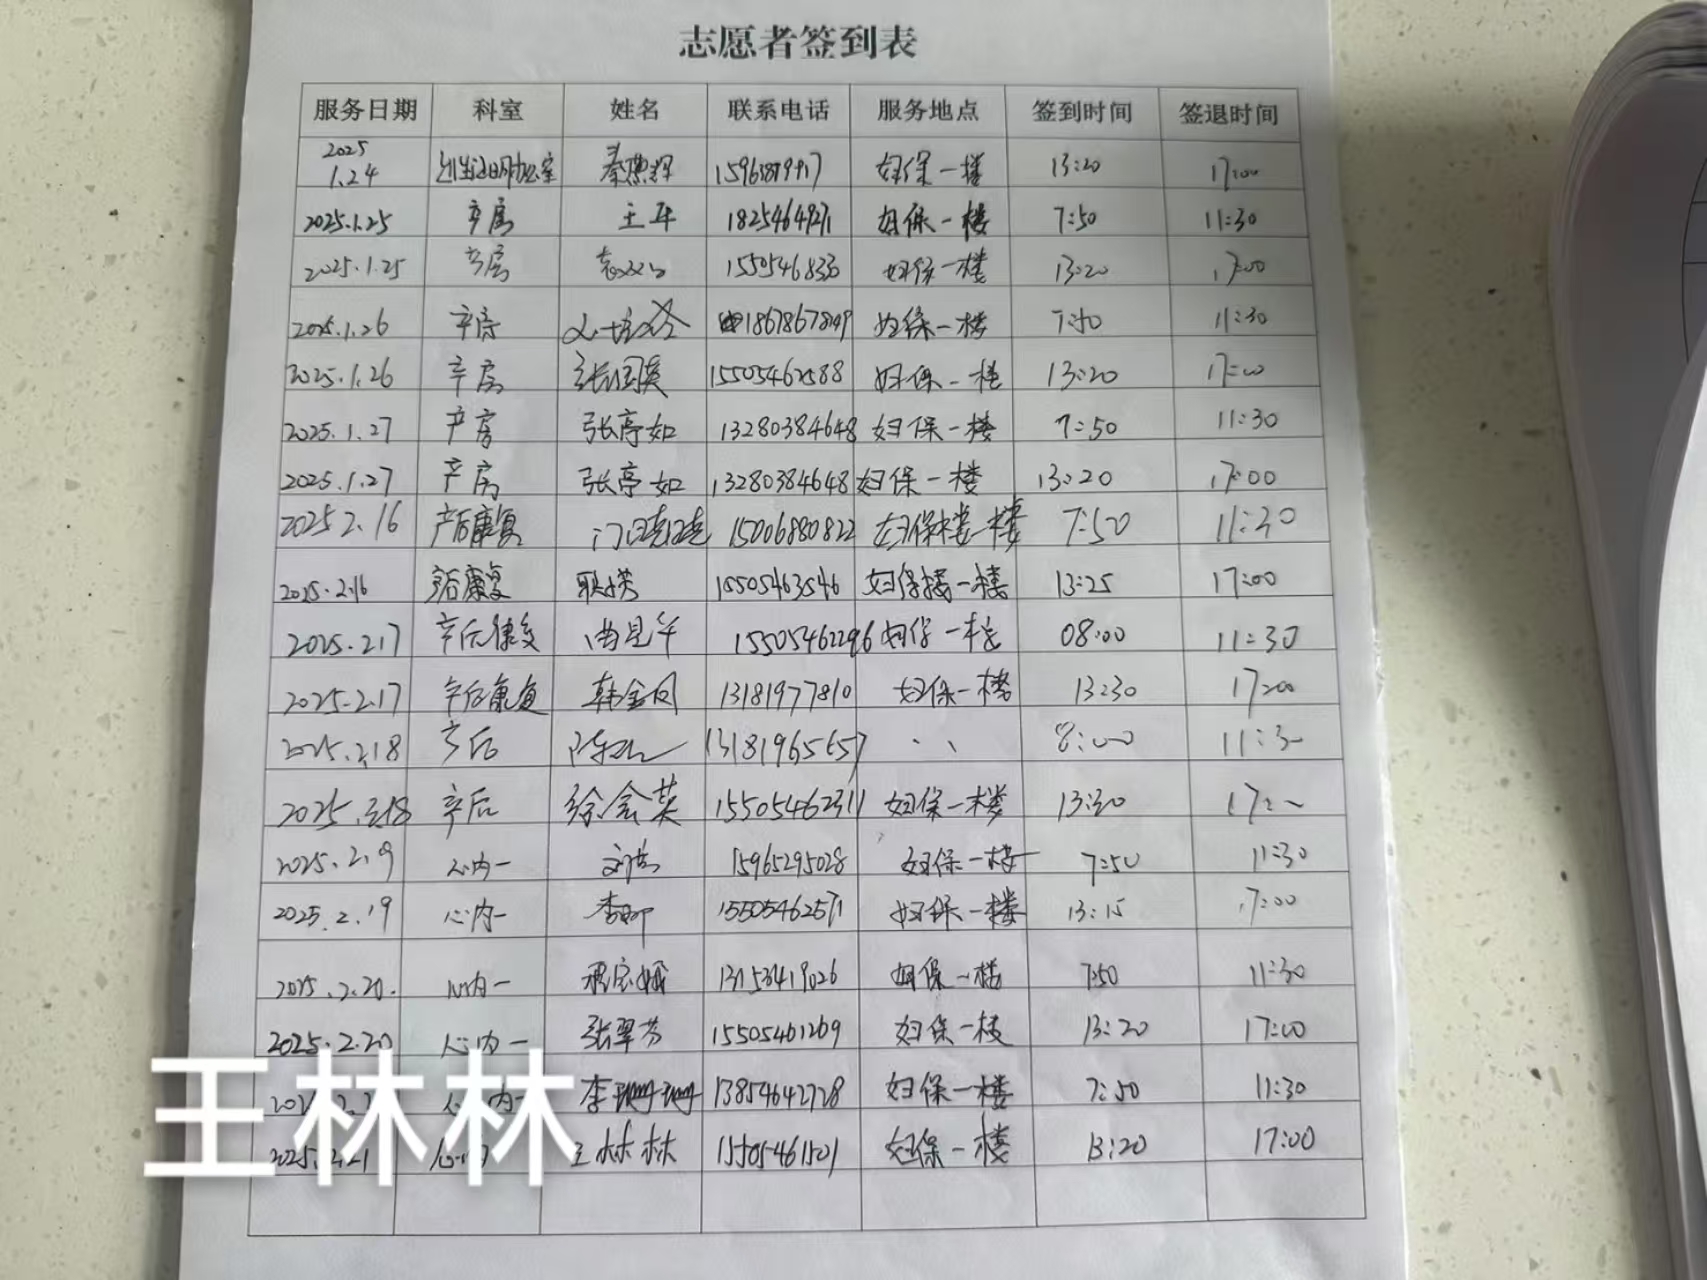 志愿者签到表
服务日期 科室 姓名 联系电话 服务地点 签到时间 签退时间
2025
1.24 妇保一楼 13:20 17:00
2025.1.25 产房 王平 妇保一楼 7:50 11:30
2025.1.25 产房 妇保一楼 13:20 17:00
2025.1.26 产房 妇保一楼 7:50 11:30
2025.1.26 产房 张国英 15505462588 妇保一楼 13:20 17:00
2025.1.27 产房 张亭如 13280384648 妇保一楼 7:50 11:30
2025.1.27 产房 张亭如 13280384648 妇保一楼 13:20 17:00
2025 2.16 产后康复 门晓晓 15006880822 妇保楼一楼 7:50 11:30
2025.2.16 产后康复 15505463546 妇保楼一楼 13:25 17:00
2025.2.17 产后康复 15505462296 妇保一楼 08:00 11:30
2025.2.17 产后康复 韩金凤 13181977810 妇保一楼 13:30 17:00
2025.2.18 产后 13181965657 、、 8:00 11:30
产后 徐会英 15505462311 妇保一楼 13:30
2025.2.9 心内一 15965295028 妇保一楼 7:50 11:30
2025.2.19 心内一 15505462571 妇保一楼 13:15 17:00
2025.2.20. 心内一 妇保一楼 7:50 11:30
2025.2.20 心内一 张翠芳 15505461269 妇保一楼 13:20 17:00
心内一 李珊珊 13854642728 妇保一楼 7:50 11:30
2025.2.21 王林林 15505461501 妇保一楼 13:20 17:00
王林林